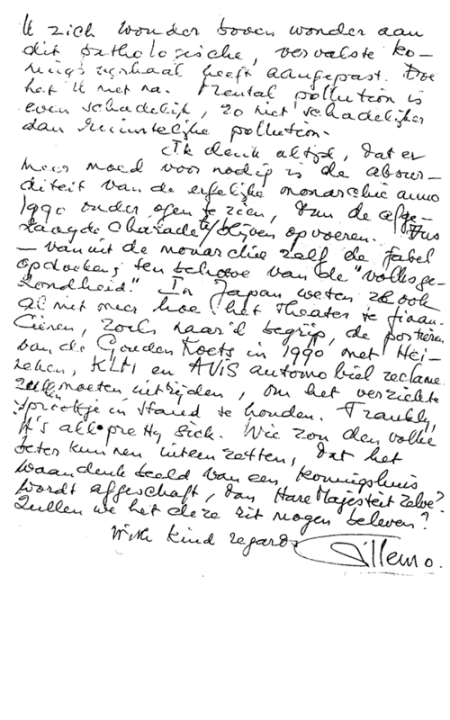 U zich wonder boven wonder aan
dit pathologische, vervalste ko-
ningsverhaal heeft aangepast. Doe
het U niet na. Mental pollution is
even schadelijk, zo niet schadelijker
dan ruimtelijke pollution.
Ik denk altijd, dat er
meer moed voor nodig is de absur-
diteit van de erfelijke monarchie anno
1990 onder ogen te zien, dan de afge-
zaagde charade te blijven opvoeren. Dus
- vanuit de monarchie zelf de fabel
opdoeken, ten behoeve van de "volksge-
zondheid." In Japan weten ze ook
al niet meer hoe het theater te finan-
cieren, zoals naar ik begrijp, de portieren
van de Gouden Koets in 1990 met Hei-
neken, KLM en AVIS automobiel reclame
zullen moeten uitrijden, om het verziekte
sprookje in stand te houden. Frankly,
it's all pretty sick. Wie zou den volke
beter kunnen uiteen zetten, dat het
waandenkbeeld van een koningshuis
wordt afgeschaft, dan Hare Majesteit zelve?
Zullen we het deze rit mogen beleven?
With kind regards
Willem O.